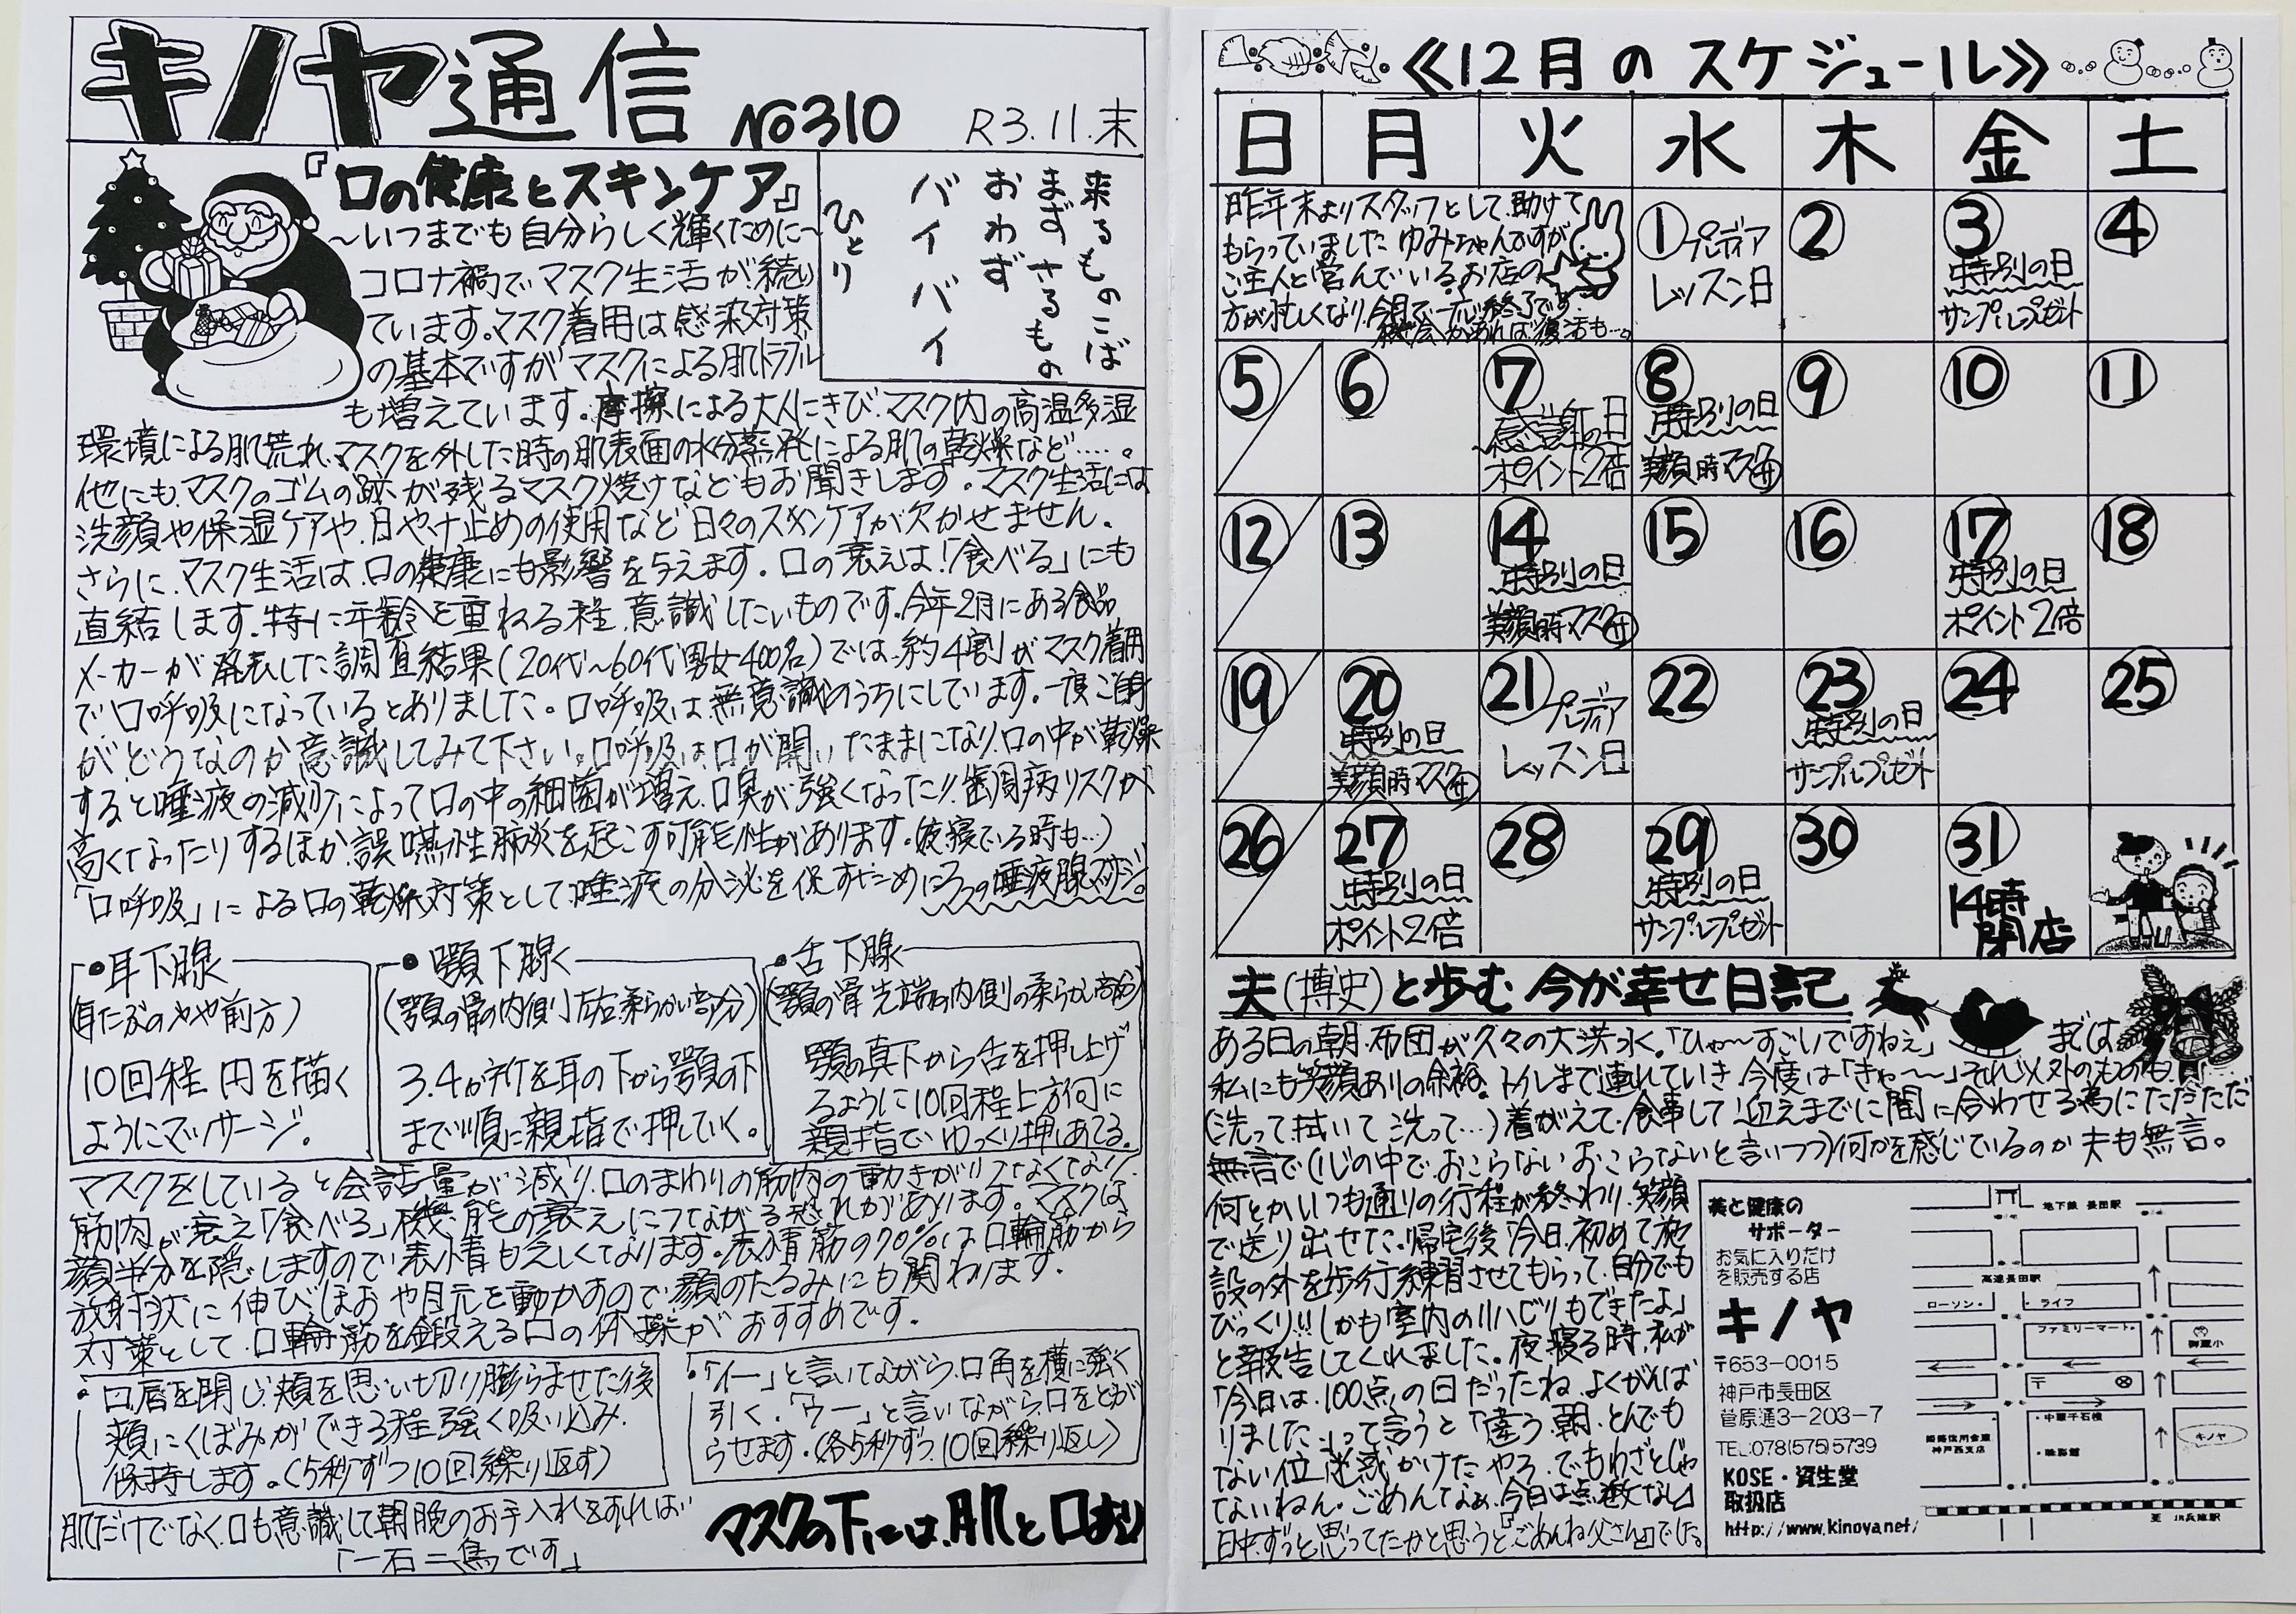 キノヤ通信 No310 R3.11.末
『口の健康とスキンケア』
〜いつまでも自分らしく輝くために〜
来るものこば
まず さるもの
おわず
バイバイ
バイ
ひとり
コロナ禍でマスク生活が続い
ています。マスク着用は感染対策
の基本ですがマスクによる肌トラブル
も増えています。摩擦による大人にきび、マスク内の高温多湿
環境による肌荒れ、マスクを外した時の肌表面の水分蒸発による肌の乾燥など……。
他にも、マスクのゴムの跡が残るマスク焼けなどもお聞きします。マスク生活には
洗顔や保湿ケアや、日やけ止めの使用など日々のスキンケアが欠かせません。
さらに、マスク生活は、口の健康にも影響を与えます。口の衰えは「食べる」にも
直結します。特に年齢を重ねる程、意識したいものです。今年2月にある食品
メーカーが発表した調査結果(20代〜60代男女400名)では、約4割がマスク着用
で口呼吸になっているとありました。口呼吸は、無意識のうちにしています。一度ご自身
がどうなのか意識してみて下さい。口呼吸は、口が開いたままになり、口の中が乾燥
すると唾液の減少によって口の中の細菌が増え、口臭が強くなったり、歯周病リスクが
高くなったりするほか、誤嚥性肺炎を起こす可能性があります。(夜寝ている時も…)
「口呼吸」による口の乾燥対策として、唾液の分泌を促すために3つの唾液腺マッサージ。
・耳下腺
(耳たぶのやや前方)
10回程、円を描く
ようにマッサージ。
・顎下腺
(顎の骨の内側、左右柔らかい部分)
3.4か所を耳の下から顎の下
まで順に親指で押していく。
・舌下腺
(顎の骨先端の内側の柔らかい部分)
顎の真下から舌を押し上げ
るように10回程上方向に
親指でゆっくり押しあてる。
マスクをしていると会話量が減り、口のまわりの筋肉の動きが少なくなり、
筋肉が衰え「食べる」機能の衰えにつながる恐れがあります。マスクは
顔半分を隠しますので表情もとぼしくなります。表情筋の70%は口輪筋から
放射状に伸び、ほおや目元を動かすので、顔のたるみにも関わります。
対策として、口輪筋を鍛える口の体操がおすすめです。
・口唇を閉じ、頬を思い切り膨らませた後
頬にくぼみができる程強く吸い込み、
保持します。(5秒ずつ10回繰り返す)
・「イー」と言いながら、口角を横に強く
引く、「ウー」と言いながら、口をとが
らせます。(各5秒ずつ、10回繰り返し)
肌だけでなく、口も意識して朝晩のお手入れをすれば
「一石二鳥です」
マスクの下には、肌と口あり
《12月のスケジュール》
日 月 火 水 木 金 土
昨年末よりスタッフとして、助けて
もらっていました ゆみちゃんですが
ご主人と営んでいるお店の
方が忙しくなり、今月で一応終了です。
機会があれば復活も…。
1 プレディア
レッスン日
2
3 特別の日
サンプルプレゼント
4
5
6
7 感謝の日
ポイント2倍
8 特別の日
美顔時マスク付
9
10
11
12
13
14 特別の日
美顔時マスク付
15
16
17 特別の日
ポイント2倍
18
19
20 特別の日
美顔時マスク付
21 プレディア
レッスン日
22
23 特別の日
サンプルプレゼント
24
25
26
27 特別の日
ポイント2倍
28
29 特別の日
サンプルプレゼント
30
31 14時
閉店
夫(博史)と歩む 今が幸せ日記
ある日の朝、布団が久々の大洪水。「ひゃ〜すごいですねぇ」まずは
私にも笑顔ありの余裕。トイレまで連れていき 今度は「きゃ〜〜」それ以外のものも
(洗って拭いて洗って…)着がえて、食事して、迎えまでに間に合わせる為にただただ
無言で(心の中で、おこらない おこらないと言いつつ)何かを感じているのか 夫も無言。
何とかいつも通りの行程が終わり、笑顔
で送り出せた。帰宅後「今日、初めて施
設の外を歩行練習させてもらって、自分でも
びっくり!!しかも室内のリハビリもできたよ」
と報告してくれました。夜寝る時、私が
「今日は、100点の日だったね、よくがんば
りました。」って言うと「違う、朝、とんでも
ない位迷惑かけたやろ、でもわざとじゃ
ないねん。ごめんなぁ、今日は点数なし」
日中、ずっと思ってたかと思うと『ごめんね父さん』でした。
美と健康の
サポーター
お気に入りだけ
を販売する店
キノヤ
〒653-0015
神戸市長田区
菅原通3-203-7
TEL:078(575)5739
KOSE・資生堂
取扱店
http://www.kinoya.net/
地下鉄 長田駅
高速長田駅
ローソン
ライフ
ファミリーマート
御蔵小
〒
中華千石楼
姫路信用金庫
神戸西支店
キノヤ
至 JR兵庫駅